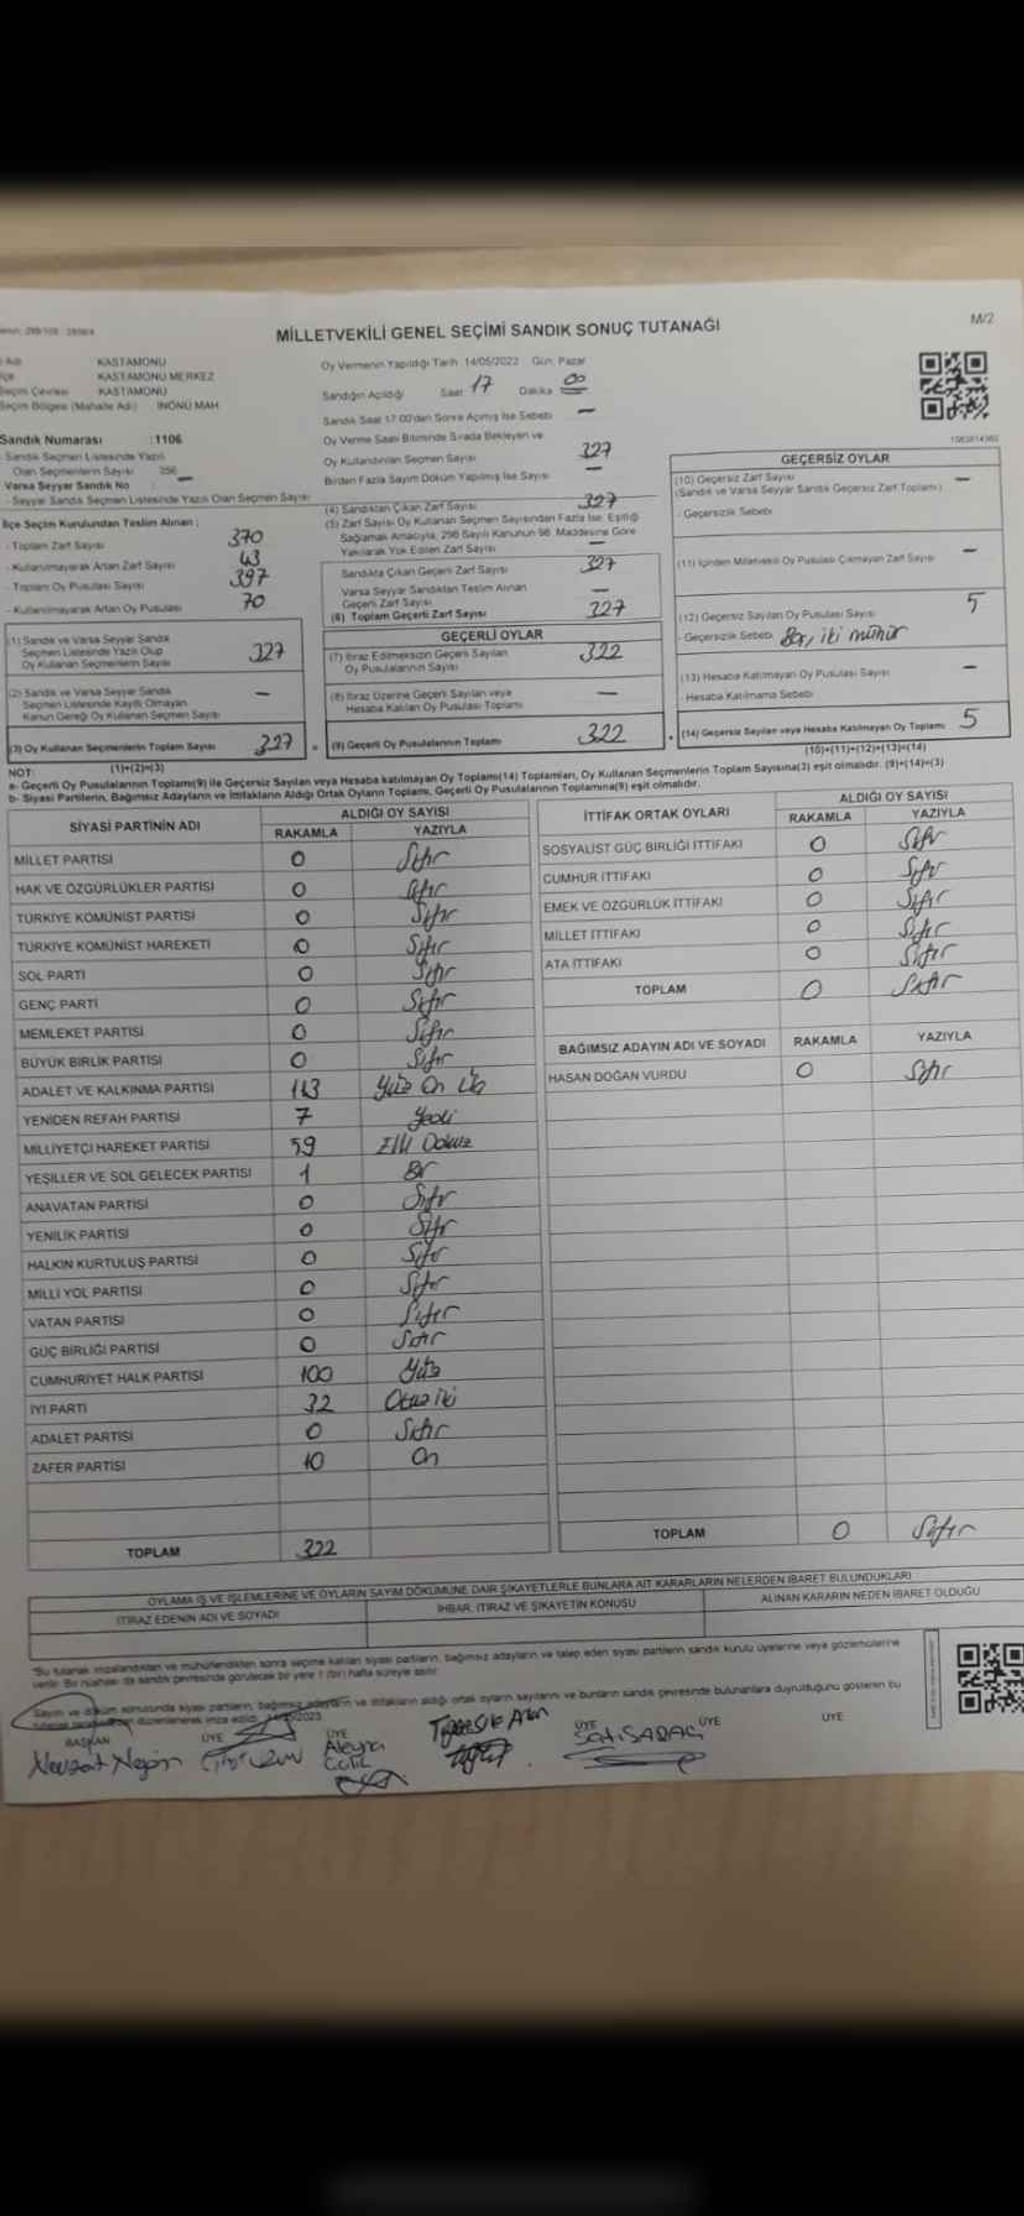 MİLLETVEKİLİ GENEL SEÇİMİ SANDIK SONUÇ TUTANAĞI
M/2
KASTAMONU
KASTAMONU MERKEZ
KASTAMONU
Seçim Bölgesi (Mahalle Adı) İNÖNÜ MAH.
Sandık Numarası :1106
Sandık Seçmen Listesinde Yazılı
Olan Seçmenlerin Sayısı
Varsa Seyyar Sandık No —
- Seyyar Sandık Seçmen Listesinde Yazılı Olan Seçmen Sayısı
İlçe Seçim Kurulundan Teslim Alınan :
- Toplam Zarf Sayısı 370
- Kullanılmayarak Artan Zarf Sayısı 43
- Toplam Oy Pusulası Sayısı 397
- Kullanılmayarak Artan Oy Pusulası 70
(1) Sandık ve Varsa Seyyar Sandık
Seçmen Listesinde Yazılı Olup
Oy Kullanan Seçmenlerin Sayısı 327
(2) Sandık ve Varsa Seyyar Sandık
Seçmen Listesinde Kayıtlı Olmayan
Kanun Gereği Oy Kullanan Seçmen Sayısı —
(3) Oy Kullanan Seçmenlerin Toplam Sayısı 327
(1)+(2)=(3)
Oy Vermenin Yapıldığı Tarih 14/05/2023 Gün: Pazar
Sandığın Açıldığı Saat 17 Dakika 00
Sandık Saat 17:00'dan Sonra Açılmış İse Sebebi —
Oy Verme Saati Bitiminde Sırada Bekleyen ve
Oy Kullandırılan Seçmen Sayısı 327
Birden Fazla Sayım Döküm Yapılmış İse Sayısı —
(4) Sandıktan Çıkan Zarf Sayısı 327
(5) Zarf Sayısı Oy Kullanan Seçmen Sayısından Fazla İse, Eşitliği
Sağlamak Amacıyla, 298 Sayılı Kanunun 98. Maddesine Göre
Yakılarak Yok Edilen Zarf Sayısı —
Sandıkta Çıkan Geçerli Zarf Sayısı 327
Varsa Seyyar Sandıktan Teslim Alınan
Geçerli Zarf Sayısı —
(6) Toplam Geçerli Zarf Sayısı 327
GEÇERLİ OYLAR
(7) İtiraz Edilmeksizin Geçerli Sayılan
Oy Pusulalarının Sayısı 322
(8) İtiraz Üzerine Geçerli Sayılan veya
Hesaba Katılan Oy Pusulası Toplamı —
(9) Geçerli Oy Pusulalarının Toplamı 322
GEÇERSİZ OYLAR
(10) Geçersiz Zarf Sayısı —
(Sandık ve Varsa Seyyar Sandık Geçersiz Zarf Toplamı)
- Geçersizlik Sebebi
(11) İçinden Milletvekili Oy Pusulası Çıkmayan Zarf Sayısı —
(12) Geçersiz Sayılan Oy Pusulası Sayısı 5
- Geçersizlik Sebebi Boş, iki mühür
(13) Hesaba Katılmayan Oy Pusulası Sayısı —
- Hesaba Katılmama Sebebi
(14) Geçersiz Sayılan veya Hesaba Katılmayan Oy Toplamı 5
(10)+(11)+(12)+(13)=(14)
NOT:
a- Geçerli Oy Pusulalarının Toplamı(9) ile Geçersiz Sayılan veya Hesaba katılmayan Oy Toplamı(14) Toplamları, Oy Kullanan Seçmenlerin Toplam Sayısına(3) eşit olmalıdır. (9)+(14)=(3)
b- Siyasi Partilerin, Bağımsız Adayların ve İttifakların Aldığı Ortak Oyların Toplamı, Geçerli Oy Pusulalarının Toplamına(9) eşit olmalıdır.
SİYASİ PARTİNİN ADI ALDIĞI OY SAYISI
RAKAMLA YAZIYLA
MİLLET PARTİSİ 0 Sıfır
HAK VE ÖZGÜRLÜKLER PARTİSİ 0 Sıfır
TÜRKİYE KOMÜNİST PARTİSİ 0 Sıfır
TÜRKİYE KOMÜNİST HAREKETİ 0 Sıfır
SOL PARTİ 0 Sıfır
GENÇ PARTİ 0 Sıfır
MEMLEKET PARTİSİ 0 Sıfır
BÜYÜK BİRLİK PARTİSİ 0 Sıfır
ADALET VE KALKINMA PARTİSİ 113 Yüz On Üç
YENİDEN REFAH PARTİSİ 7 Yedi
MİLLİYETÇİ HAREKET PARTİSİ 59 Elli Dokuz
YEŞİLLER VE SOL GELECEK PARTİSİ 1 Bir
ANAVATAN PARTİSİ 0 Sıfır
YENİLİK PARTİSİ 0 Sıfır
HALKIN KURTULUŞ PARTİSİ 0 Sıfır
MİLLİ YOL PARTİSİ 0 Sıfır
VATAN PARTİSİ 0 Sıfır
GÜÇ BİRLİĞİ PARTİSİ 0 Sıfır
CUMHURİYET HALK PARTİSİ 100 Yüz
İYİ PARTİ 32 Otuz iki
ADALET PARTİSİ 0 Sıfır
ZAFER PARTİSİ 10 On
TOPLAM 322
İTTİFAK ORTAK OYLARI ALDIĞI OY SAYISI
RAKAMLA YAZIYLA
SOSYALİST GÜÇ BİRLİĞİ İTTİFAKI 0 Sıfır
CUMHUR İTTİFAKI 0 Sıfır
EMEK VE ÖZGÜRLÜK İTTİFAKI 0 Sıfır
MİLLET İTTİFAKI 0 Sıfır
ATA İTTİFAKI 0 Sıfır
TOPLAM 0 Sıfır
BAĞIMSIZ ADAYIN ADI VE SOYADI RAKAMLA YAZIYLA
HASAN DOĞAN VURDU 0 Sıfır
TOPLAM 0 Sıfır
OYLAMA İŞ VE İŞLEMLERİNE VE OYLARIN SAYIM DÖKÜMÜNE DAİR ŞİKAYETLERLE BUNLARA AİT KARARLARIN NELERDEN İBARET BULUNDUKLARI
İTİRAZ EDENİN ADI VE SOYADI İHBAR, İTİRAZ VE ŞİKAYETİN KONUSU ALINAN KARARIN NEDEN İBARET OLDUĞU
"Bu tutanak imzalandıktan ve mühürlendikten sonra seçime katılan siyasi partilerin, bağımsız adayların ve talep eden siyasi partilerin sandık kurulu üyelerine veya gözlemcilerine
verilir. Bir nüshası da sandık çevresinde görülecek bir yere 1 (bir) hafta süreyle asılır.
Sayım ve döküm sonucunda siyasi partilerin, bağımsız adayların ve ittifakların aldığı ortak oyların sayılarını ve bunların sandık çevresinde bulunanlara duyurulduğunu gösteren bu
BAŞKAN ÜYE ÜYE ÜYE ÜYE ÜYE